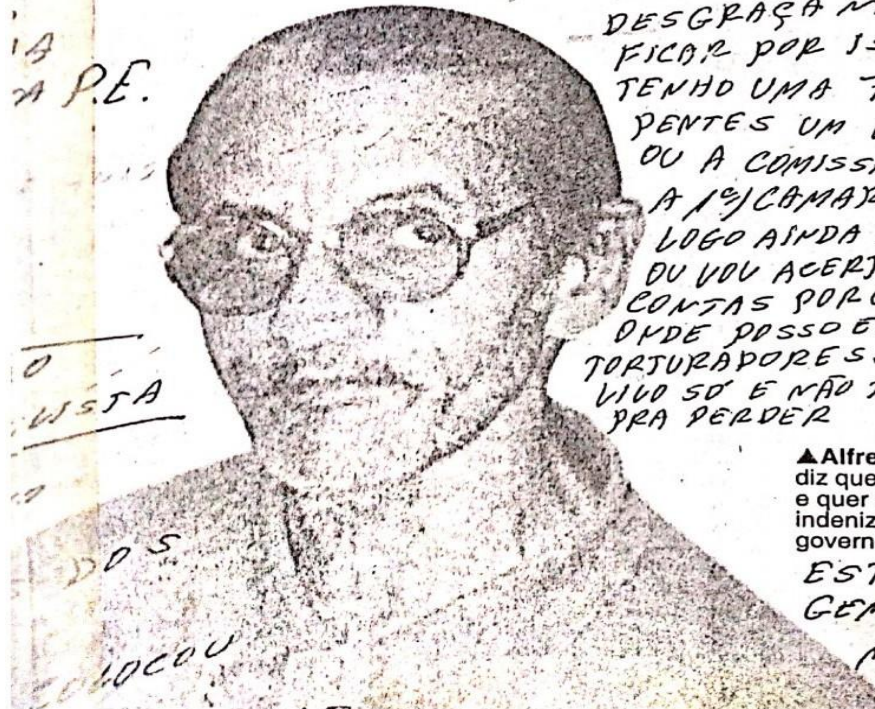 DESGRAÇA
FICAR POR IS
TENHO UMA T
PENTES UM
OU A COMISS
A 1ª) CAMAR
LOGO AINDA
OU VOU ACERT
CONTAS POR
ONDE POSSO E
TORTURADORES
VIVO SÓ E NÃO
PRA PERDER
P.E.
USTA
▲Alfre
diz que
e quer
indeniz
govern
EST
GEN
DOS
LOCOU